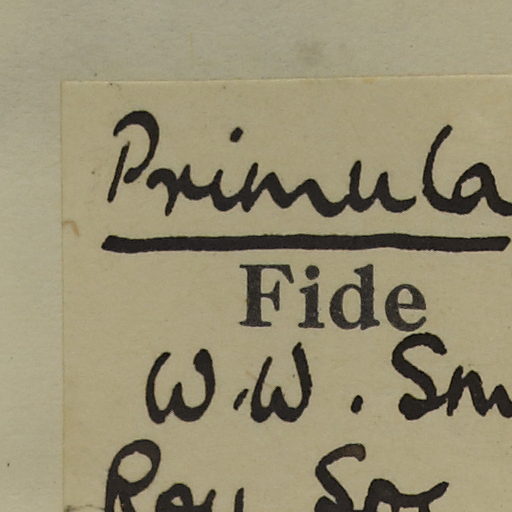 Primula
Fide
W.W. Sm
Roy Soc